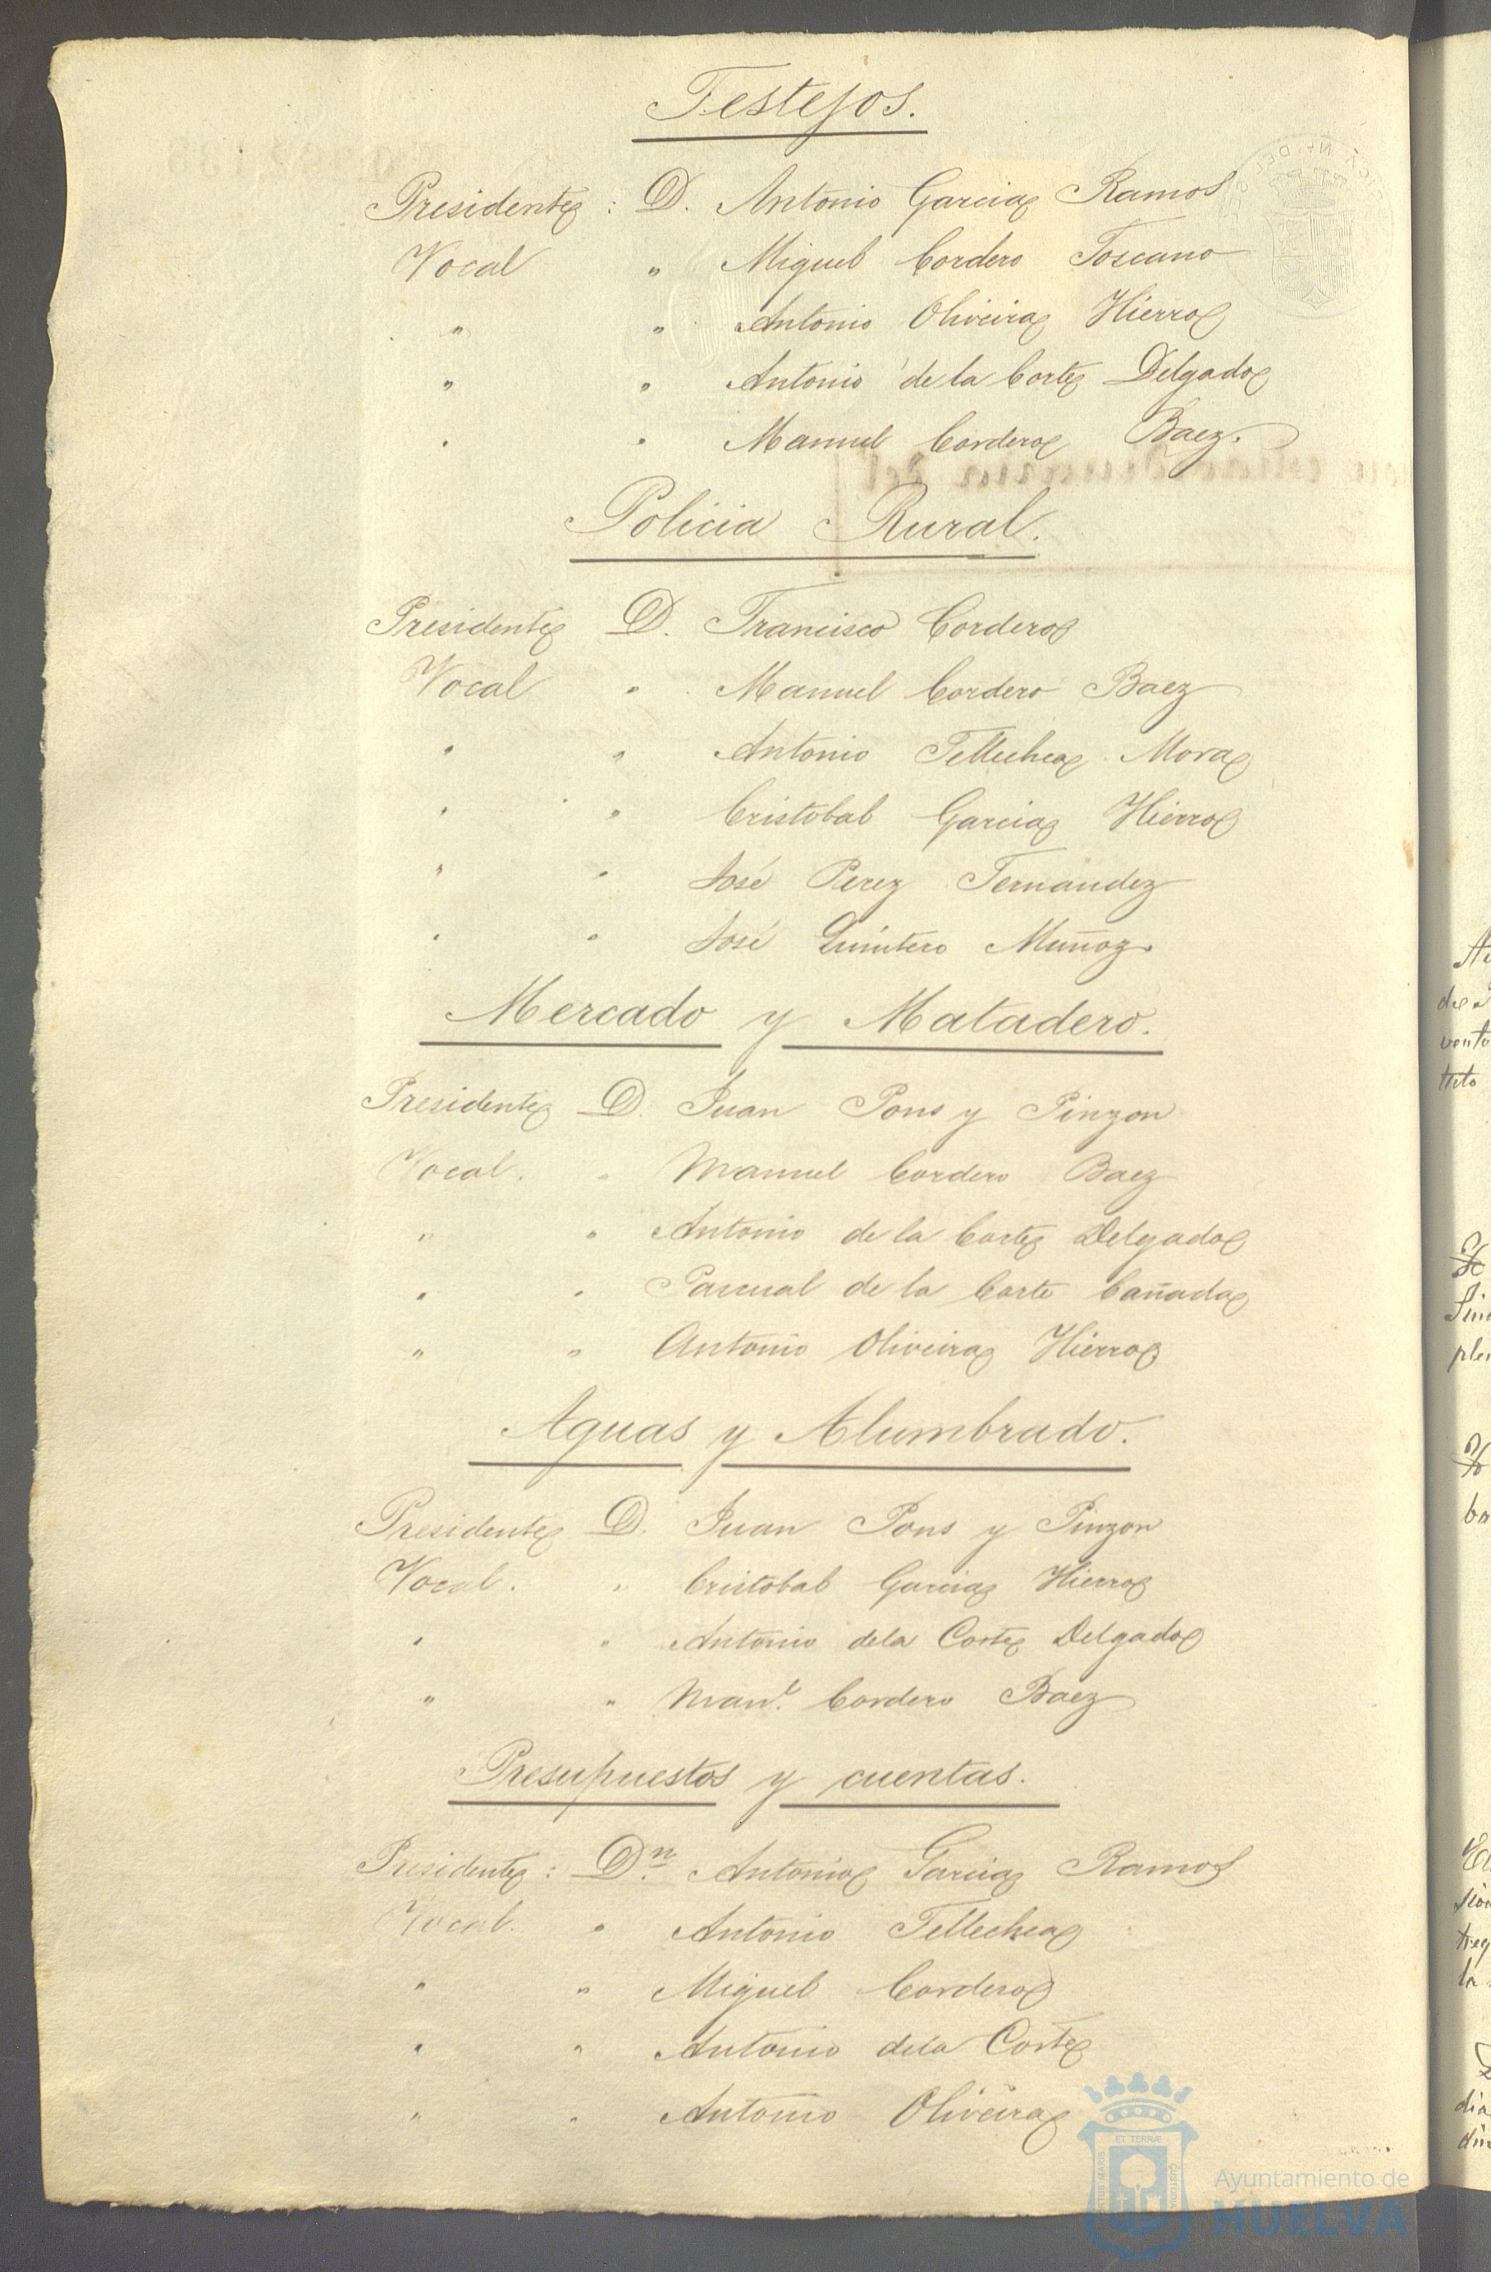 Festejos.
Presidente : D. Antonio Garcia Ramos
Vocal " Miguel Cordero Toscano
" " Antonio Oliveira Hierro
" " Antonio de la Corte Delgado
" " Manuel Cordero Baez.
Policia Rural.
Presidente D. Francisco Cordero
Vocal " Manuel Cordero Baez
" " Antonio Tellechea Mora
" " Cristobal Garcia Hierro
" " José Perez Fernandez
" " José Quintero Muñoz.
Mercado y Matadero.
Presidente D. Juan Pons y Pinzon
Vocal. " Manuel Cordero Baez
" " Antonio de la Corte Delgado
" " Pascual de la Corte Cañada
" " Antonio Oliveira Hierro
Aguas y Alumbrado.
Presidente D. Juan Pons y Pinzon
Vocal. " Cristobal Garcia Hierro
" " Antonio dela Corte Delgado
" " Manl. Cordero Baez
Presupuestos y cuentas.
Presidente : Dn. Antonio Garcia Ramos
Vocal. " Antonio Tellechea
" " Miguel Cordero
" " Antonio dela Corte
" " Antonio Oliveira
Ayuntamiento de
HUELVA